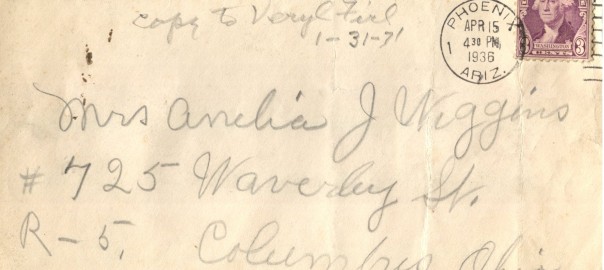 copy to Veryl Firl
1-31-71
PHOENIX
1
APR 15
4 30 PM
1936
ARIZ.
3 WASHINGTON 3
Mrs Amelia J Wiggins
# 725 Waverley St.
R-5, Columbus Ohio